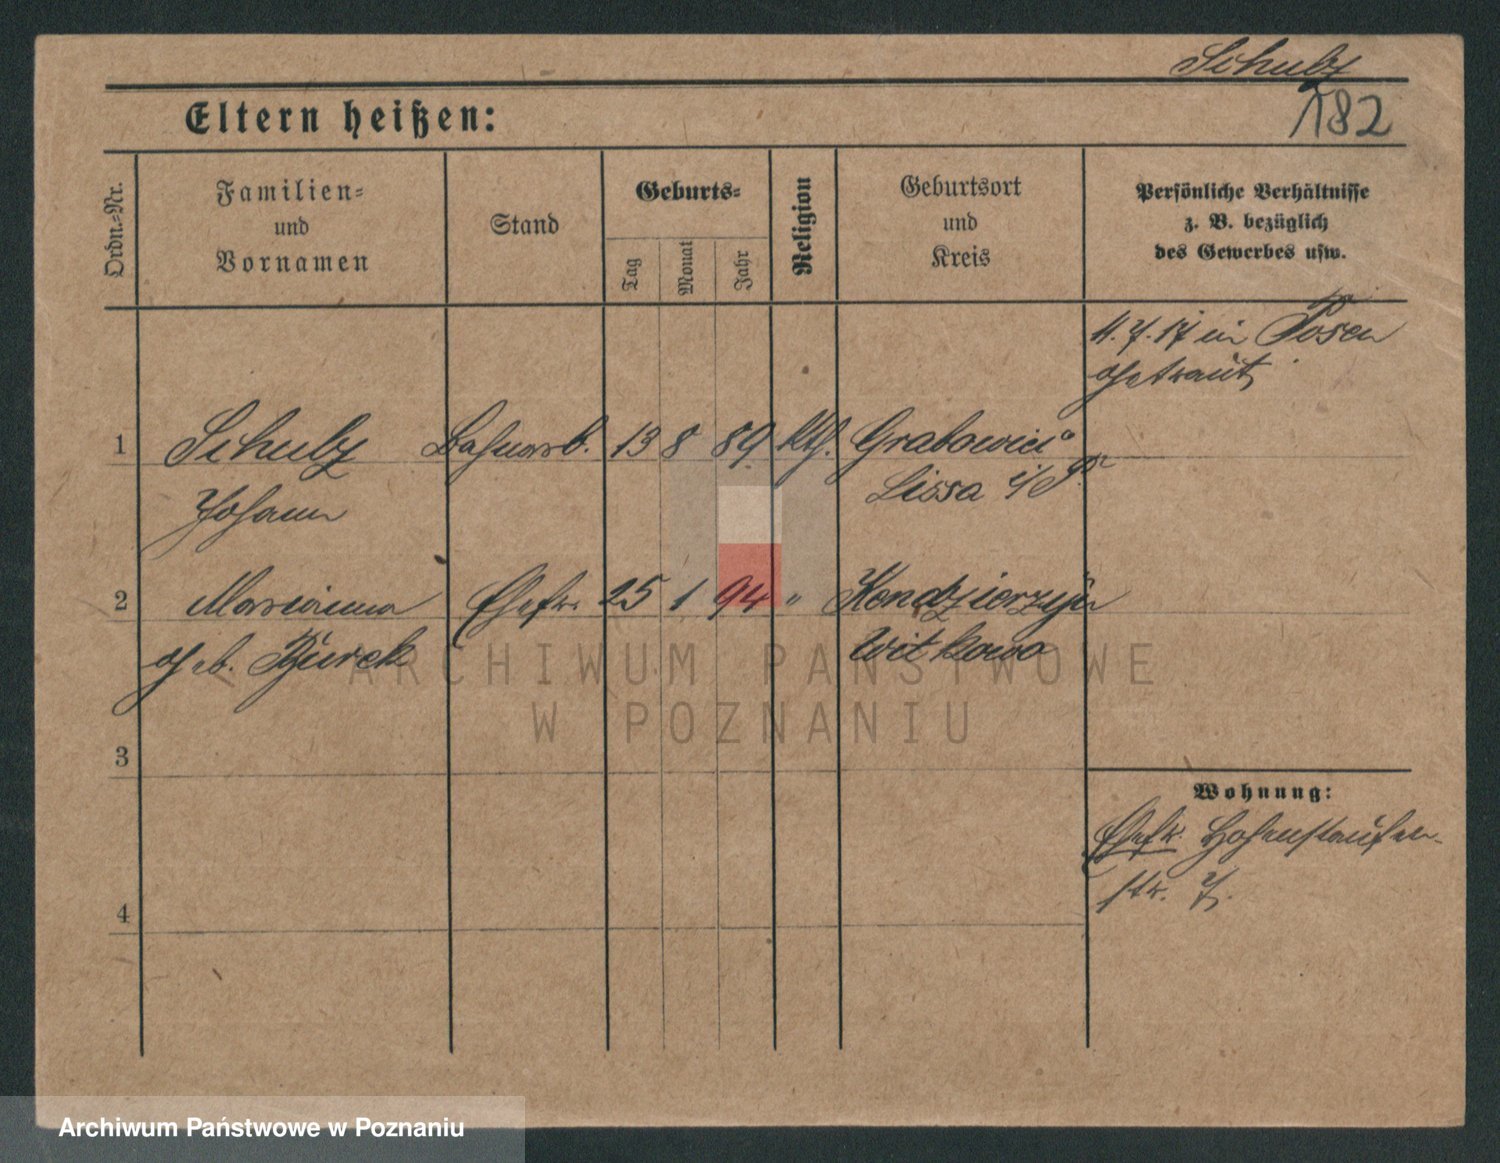 Schulz
182
Eltern heißen:
Ordn.-Nr.
Familien-
und
Vornamen
Stand
Geburts-
Tag
Monat
Jahr
Religion
Geburtsort
und
Kreis
Persönliche Verhältnisse
z. B. bezüglich
des Gewerbes usw.
11.7.17 in Posen
getraut
1 Schulz Bahnarb. 13 8 89 kth. Grabowiec
Johann Lissa i/P.
2 Marianna Ehefr. 25 1 94 " Kendzierzyn
geb. Burek Witkowo
ARCHIWUM PAŃSTWOWE
W POZNANIU
3
Wohnung:
Ehefr. Hohenstaufen-
str. 7.
4
Archiwum Państwowe w Poznaniu